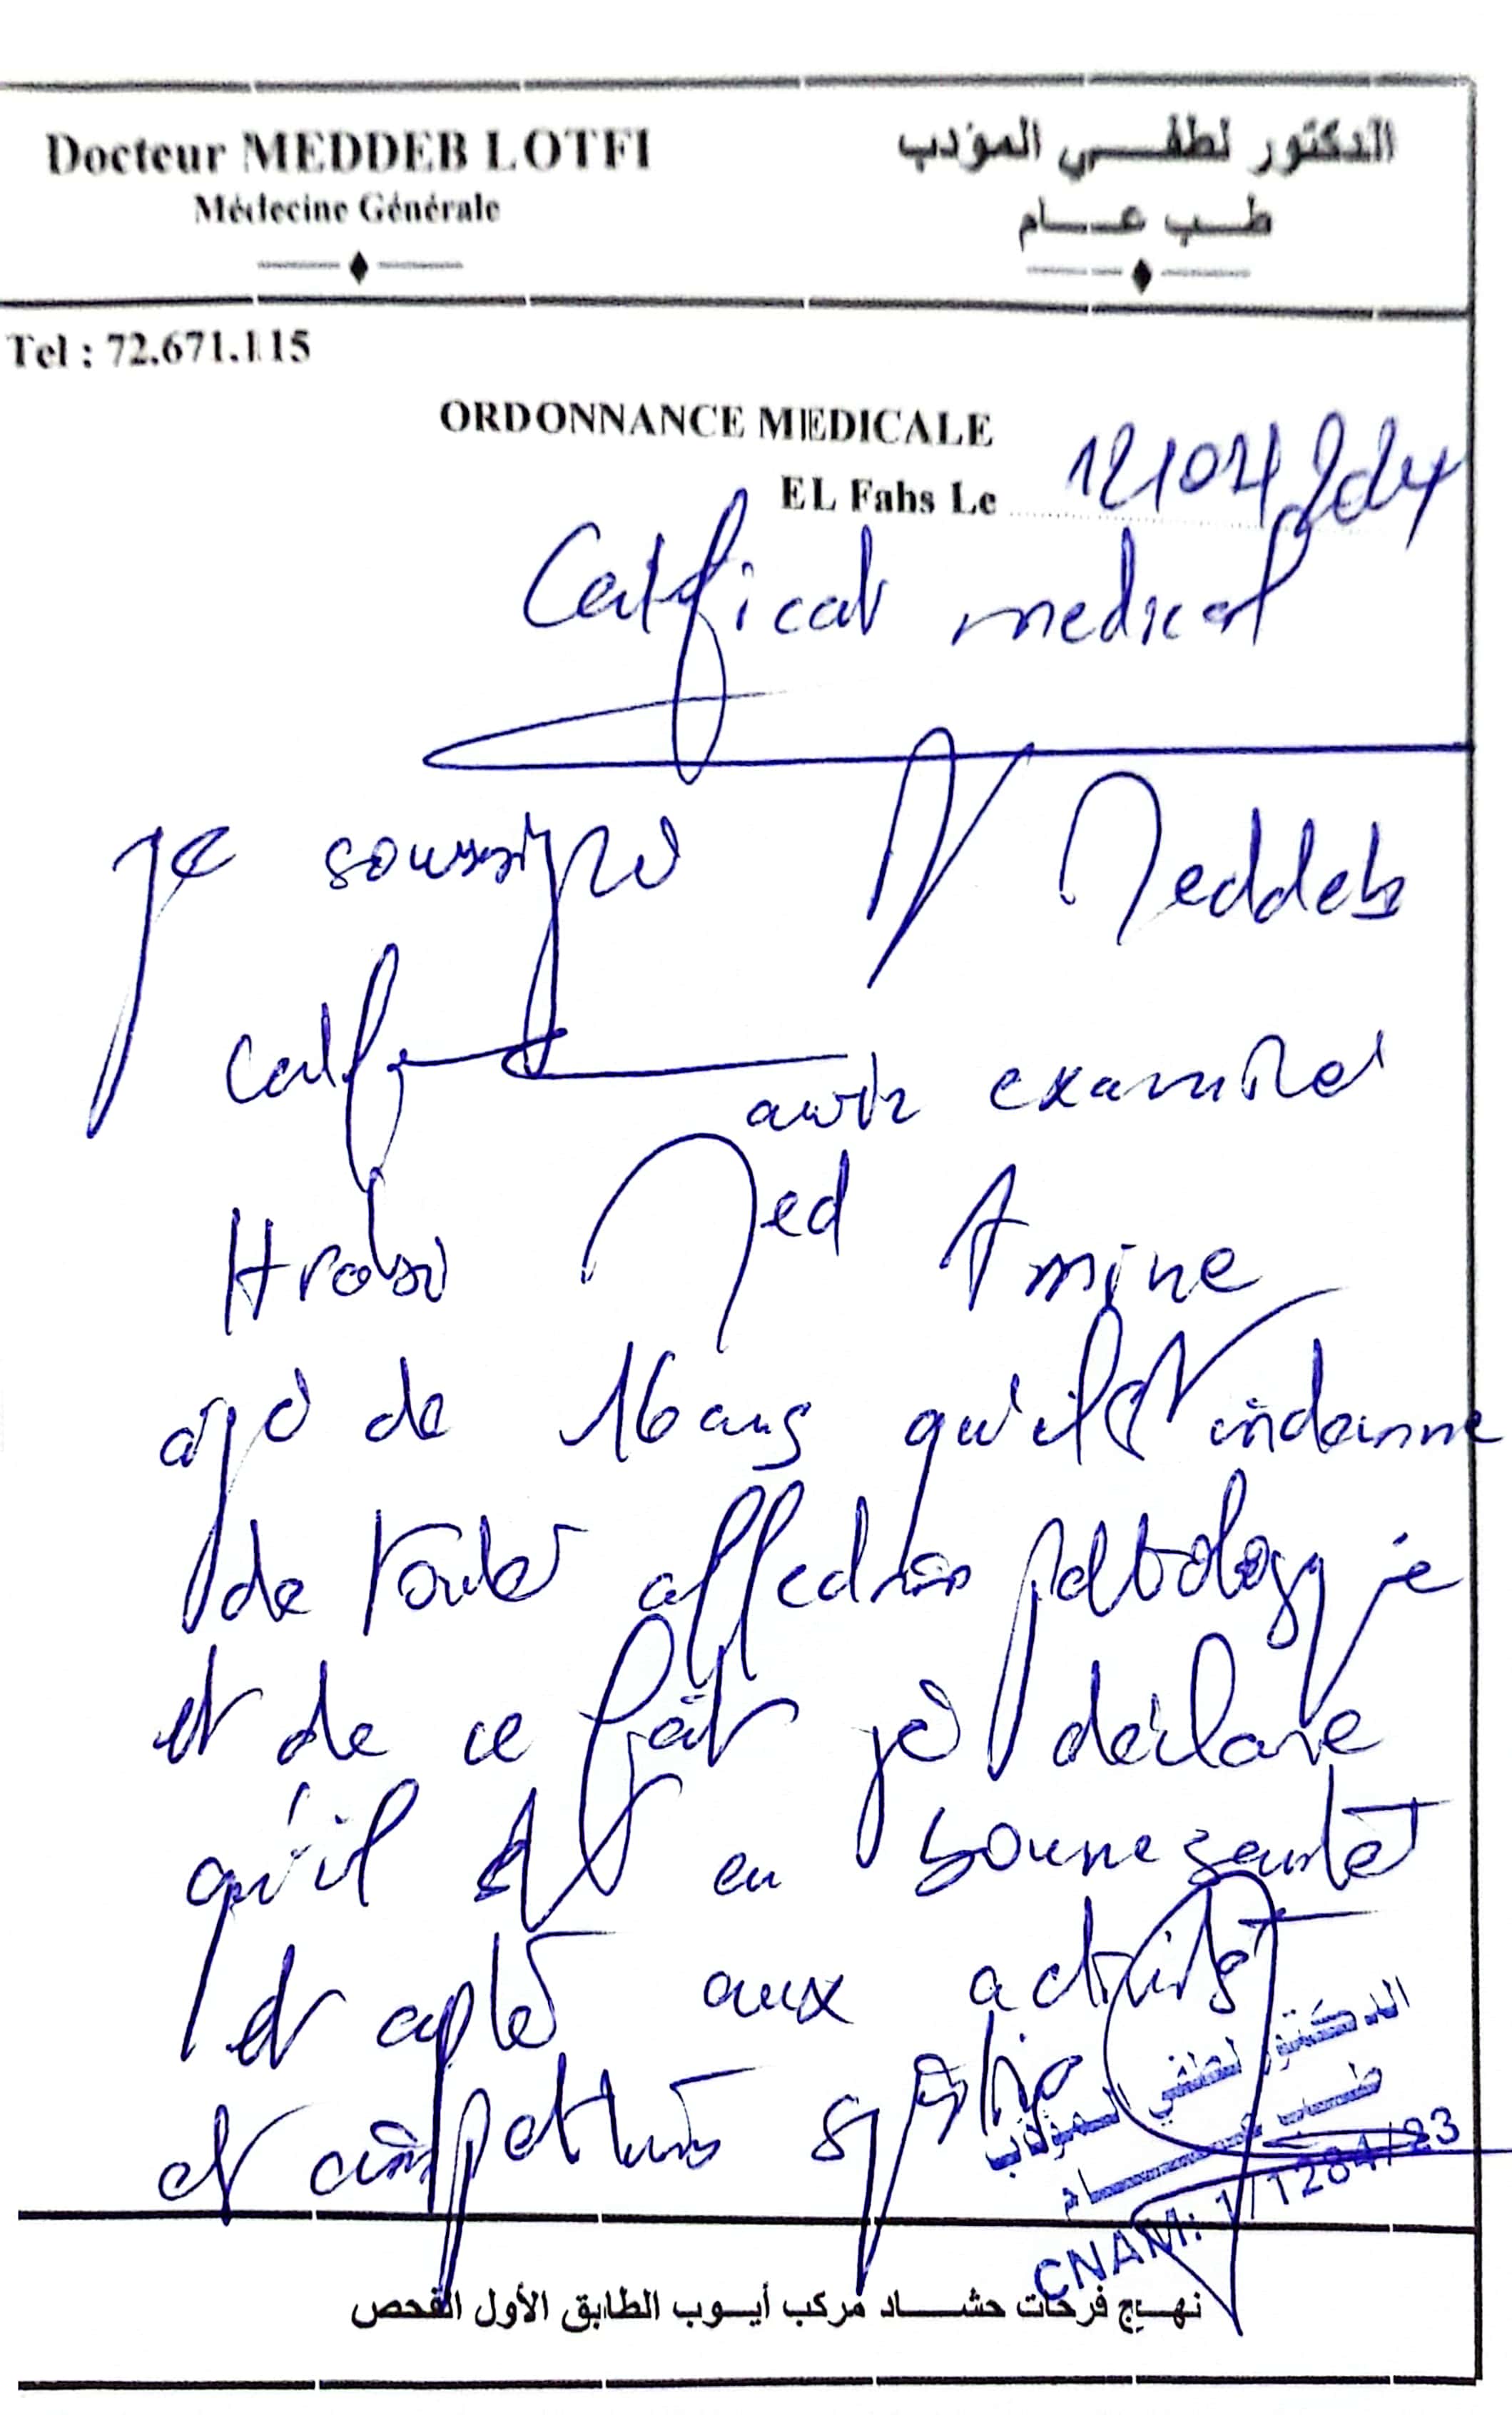 Docteur MEDDEB LOTFI
Médecine Générale
الدكتور لطفي المؤدب
طب عام
Tel : 72.671.115
ORDONNANCE MEDICALE
EL Fahs Le
Certificat medical
Je soussigné Dr Meddeb
certifie avoir examiné
Med Amine
agé de 16 ans qu'il est indemne
de toute affection pathologique
et de ce fait je déclare
qu'il est en bonne santé
et apte aux activités
et compétitions sportive
الدكتور لطفي المؤدب
طب عام
CNAM: 1/1284/93
نهج فرحات حشاد مركب أيوب الطابق الأول الفحص